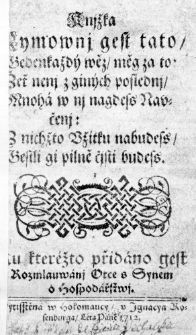 Knjžka
Zymownj gest tato/
Gedenkaždý wěz/ měg za to:
Žeť nenj z giných poslednj/
Mnohá w nj nagdeſs Nau-
čenj:
Z nichžto Vžitku nabudeſs/
Geſtli gi pilně čiſti budeſs.
ku kteréžto přidáno geſt
Rozmlauwánj Otce s Synem
o Hoſpodářſtwj.
Wytiſſtěná w Holomaucy/ v Ignacya Ro-
ſenburga/ Léta Páně 1712.